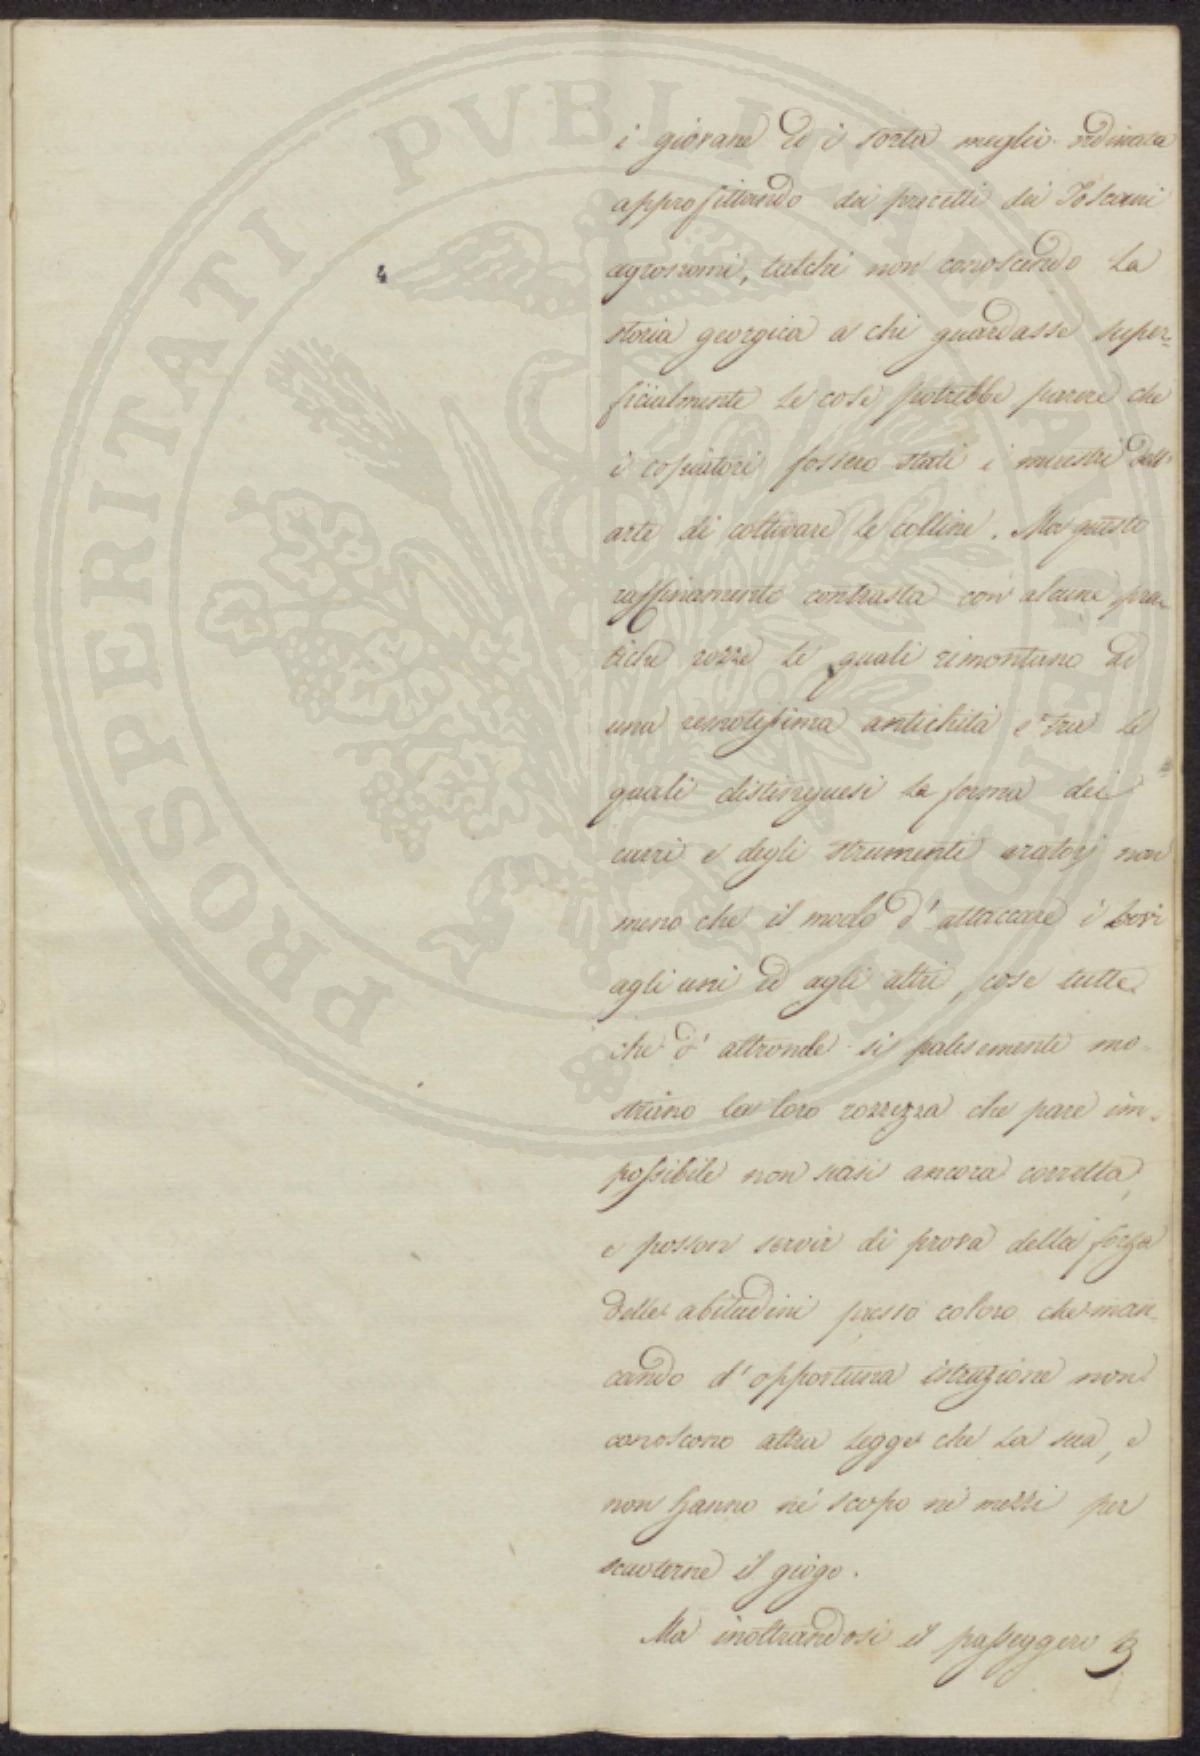 i giovane ed è sorta meglio ordinata
approfittando dei precetti dei Toscani
agronomi, talché non conoscendo la
storia georgica a chi guardasse super-
ficialmente le cose potrebbe parere che
i copiatori fossero stati i maestri dell'
arte di coltivare le colline. Ma questo
raffinamento contrasta con alcune pra-
tiche rozze le quali rimontano ad
una remotissima antichità e tra le
quali distinguesi la forma dei
carri e degli strumenti aratorj non
meno che il modo d'attaccare i bovi
agli uni ed agli altri, cose tutte
che d'altronde si palesemente mo-
strano la loro rozzezza che pare im-
possibile non siasi ancora corretta,
e posson servir di prova della forza
delle abitudini presso coloro che man-
cando d'opportuna istruzione non
conoscono altra legge che la sua, e
non hanno né scopo né mezzi per
scuoterne il giogo.
Ma inoltrandosi il passeggero
4
PROSPERITATI PVBLICAE AVGENDAE